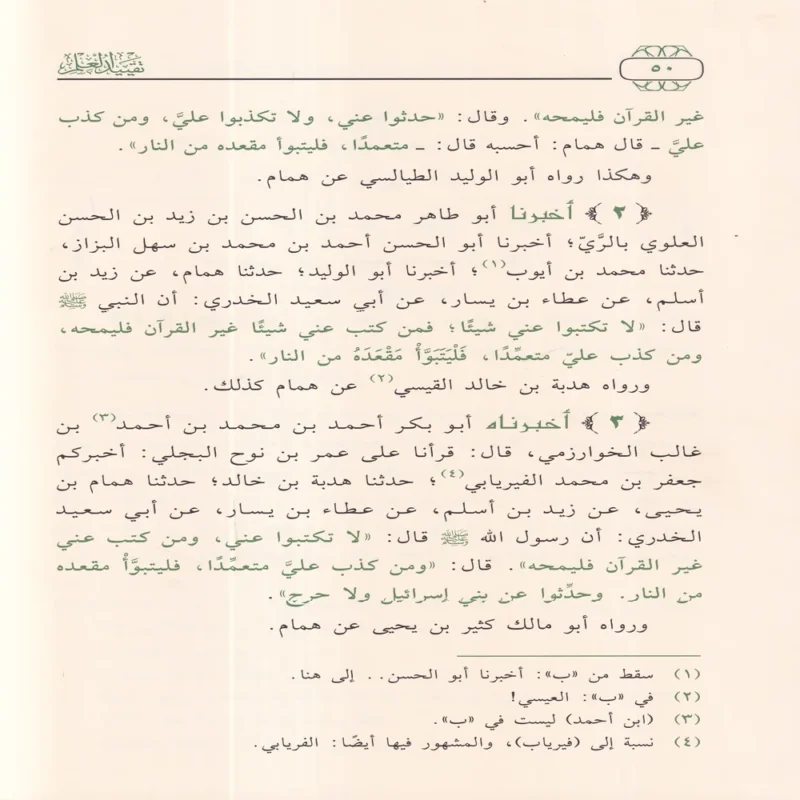 ٥٠
تقييد العلم
غير القرآن فليمحه». وقال: «حدثوا عني، ولا تكذبوا عليَّ، ومن كذب
عليَّ ـ قال همام: أحسبه قال: ـ متعمدًا، فليتبوأ مقعده من النار».
وهكذا رواه أبو الوليد الطيالسي عن همام.
﴿ ٢ ﴾ أخبرنا أبو طاهر محمد بن الحسن بن زيد بن الحسن
العلوي بالرَّيّ؛ أخبرنا أبو الحسن أحمد بن محمد بن سهل البزاز،
حدثنا محمد بن أيوب(١)؛ أخبرنا أبو الوليد؛ حدثنا همام، عن زيد بن
أسلم، عن عطاء بن يسار، عن أبي سعيد الخدري: أن النبي ﷺ
قال: «لا تكتبوا عني شيئًا؛ فمن كتب عني شيئًا غير القرآن فليمحه،
ومن كذب عليّ متعمِّدًا، فَلْيَتَبَوَّأْ مَقْعَدَهُ من النار».
ورواه هدبة بن خالد القيسي(٢) عن همام كذلك.
﴿ ٣ ﴾ أخبرناه أبو بكر أحمد بن محمد بن أحمد(٣) بن
غالب الخوارزمي، قال: قرأنا على عمر بن نوح البجلي: أخبركم
جعفر بن محمد الفيريابي(٤)؛ حدثنا هدبة بن خالد؛ حدثنا همام بن
يحيى، عن زيد بن أسلم، عن عطاء بن يسار، عن أبي سعيد
الخدري: أن رسول الله ﷺ قال: «لا تكتبوا عني، ومن كتب عني
غير القرآن فليمحه». قال: «ومن كذب عليَّ متعمِّدًا، فليتبوَّأْ مقعده
من النار. وحدِّثوا عن بني إسرائيل ولا حرج».
ورواه أبو مالك كثير بن يحيى عن همام.
(١) سقط من «ب»: أخبرنا أبو الحسن.. إلى هنا.
(٢) في «ب»: العيسي!
(٣) (ابن أحمد) ليست في «ب».
(٤) نسبة إلى (فيرياب)، والمشهور فيها أيضًا: الفريابي.